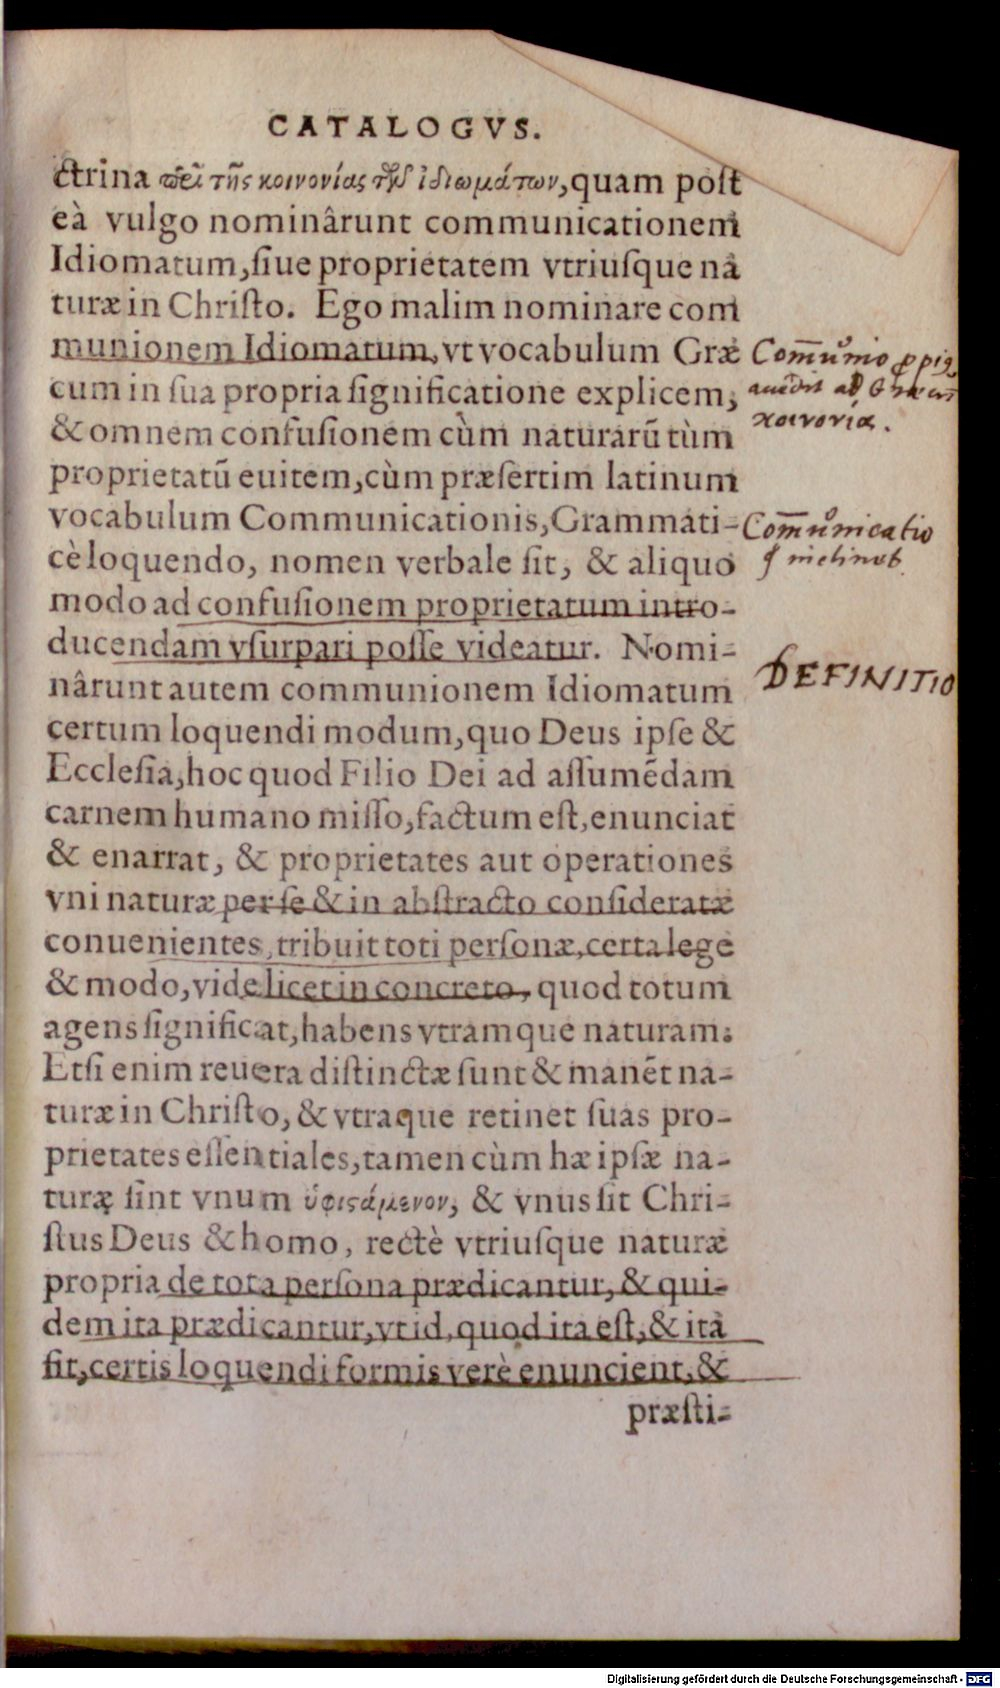 CATALOGVS.
ctrina περὶ τῆς κοινονίας τῶν ἰδιωμάτων, quam post
eà vulgo nominârunt communicationem
Idiomatum, ſiue proprietatem vtriuſque na
turæ in Chriſto. Ego malim nominare com
munionem Idiomatum, vt vocabulum Græ
cum in ſua propria ſignificatione explicem,
& omnem confuſionem cùm naturarū tùm
proprietatū euitem, cùm præſertim latinum
vocabulum Communicationis, Grammati-
cè loquendo, nomen verbale ſit, & aliquo
modo ad confuſionem proprietatum intro-
ducendam vſurpari poſſe videatur. Nomi-
nârunt autem communionem Idiomatum
certum loquendi modum, quo Deus ipſe &
Eccleſia, hoc quod Filio Dei ad aſſumēdam
carnem humano miſſo, factum eſt, enunciat
& enarrat, & proprietates aut operationes
vni naturæ per ſe & in abſtracto conſideratæ
conuenientes, tribuit toti perſonæ, certa lege
& modo, videlicet in concreto, quod totum
agens ſignificat, habens vtramque naturam:
Etſi enim reuera diſtinctæ ſunt & manēt na-
turæ in Chriſto, & vtraque retinet ſuas pro-
prietates eſſentiales, tamen cùm hæ ipſæ na-
turę ſint vnum ὑφιϛάμενον, & vnus ſit Chri-
ſtus Deus & homo, rectè vtriuſque naturæ
propria de tota perſona prædicantur, & qui-
dem ita prædicantur, vt id, quod ita eſt, & ita
fit, certis loquendi formis verè enuncient, &
præſti-
Com̄unio
ad Græcū
κοινονια.
Com̄unicatio
DEFINITIO
Digitalisierung gefördert durch die Deutsche Forschungsgemeinschaft - DFG